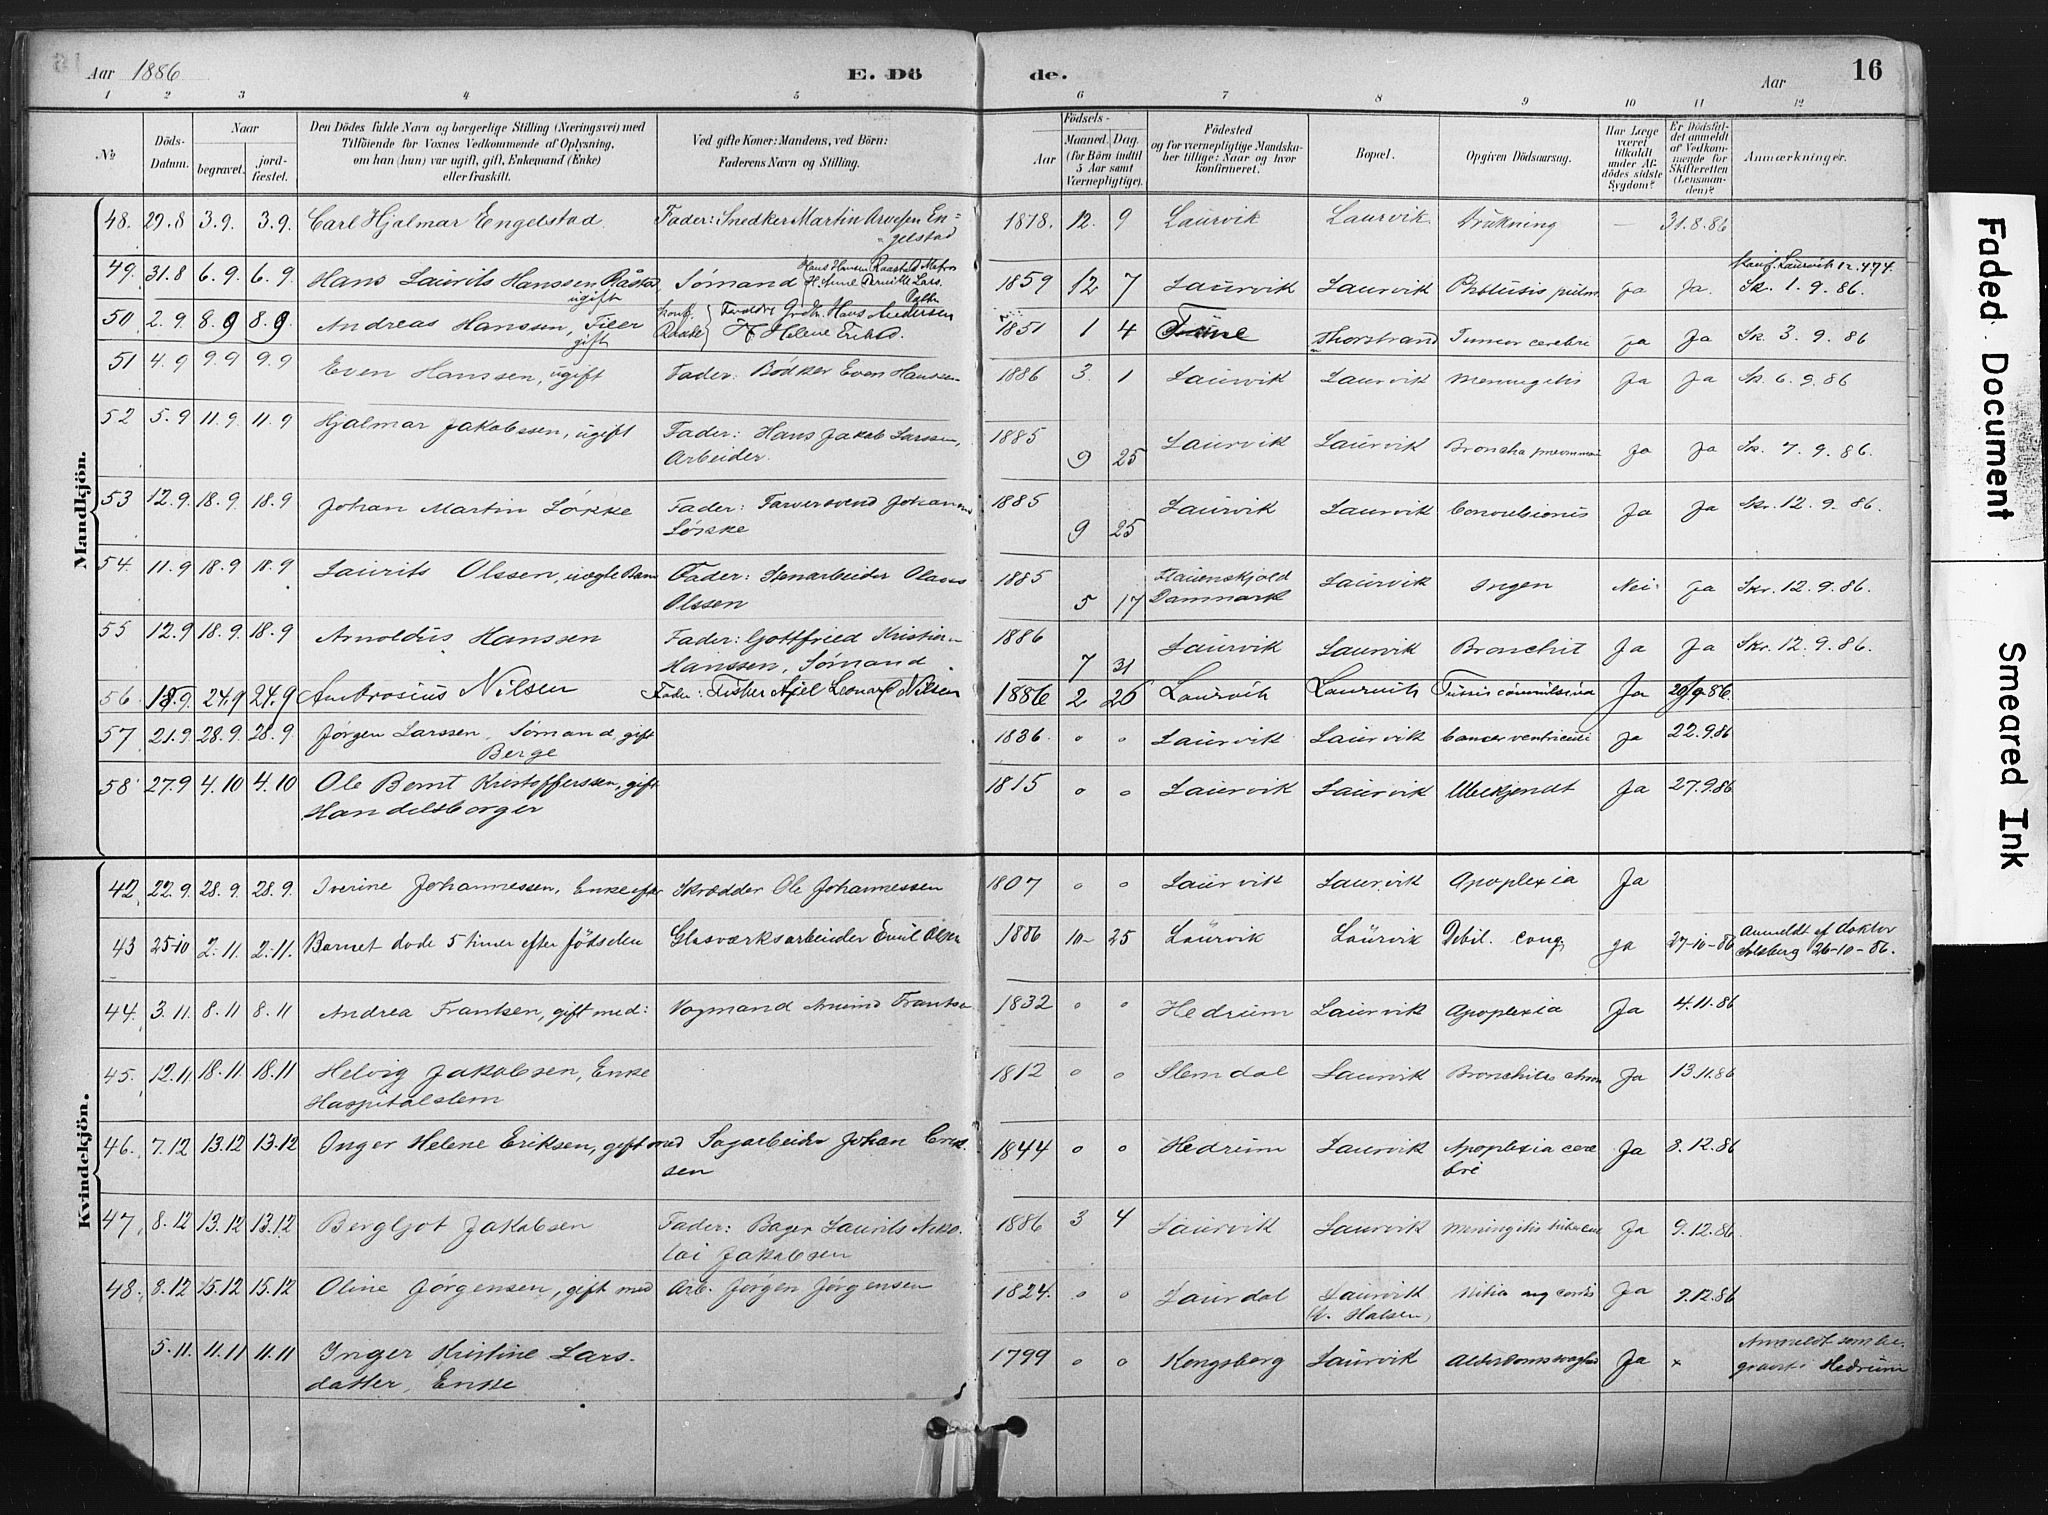 Aar 1886 E. Dö de. Aar 16
1 2 3 4 5 6 7 8 9 10 11 12
No
Döds-Datum.
Naar
begravet.
jord-fæstet.
Den Dödes fulde Navn og borgerlige Stilling (Næringsvei) med
Tilföiende for Voxnes Vedkommende af Oplysning,
om han (hun) var ugift, gift, Enkemand (Enke)
eller fraskilt.
Ved gifte Koner: Mandens, ved Börn:
Faderens Navn og Stilling.
Födsels-
Aar
Maaned. Dag.
(for Börn indtil
5 Aar samt
Værnepligtige).
Födested
og for værnepligtige Mandska-
ber tillige: Naar og hvor
konfirmeret.
Bopæl.
Opgiven Dödsaarsag.
Har Læge
været
tilkaldt
under Af-
dödes sidste
Sygdom?
Er Dödsfal-
det anmeldt
af Vedkom-
mende for
Skifteretten
(Lensman-
den)?
Anmærkninger.
Mandkjön.
48. 29.8 3.9. 3.9. Carl Hjalmar Engelstad. Fader: Snedker Martin Arvesen En= 1878. 12. 9 Laurvik Laurvik. Drukning — 31.8.86
gelstad
Konf. Laurvik 12.4.74.
49. 31.8 6.9. 6.9. Hans Laurits Hanssen Råstad Sømand Hans Hansen Raastad 1859 12 7 Laurvik Laurvik Phthisis pulm ja Ja. Sk. 1.9.86.
ugift
50 2.9. 8.9 8.9. Andreas Hanssen, gift Hans Andersen 1851 1 4 Thorstrand Tumor cerebri ja Ja Sk. 3.9.86
Helene
51 4.9 9.9 9.9 Even Hanssen, ugift Fader: Bödker Even Hanssen 1886 3. 1 Laurvik Laurvik Meningitis Ja Ja Sk. 6.9.86
52 5.9 11.9. 11.9 Hjalmar Jakobssen, ugift Fader: Hans Jakob Larssen, 1885 9 25 Laurvik Laurvik Ja Ja Sk. 7.9.86.
Arbeider.
53 12.9. 18.9 18.9 Johan Martin Løkke Fader: Farversvend Johan 1885 9 25 Laurvik Laurvik Convulsionis Ja Ja Skr. 12.9.86.
54. 11.9 18.9 18.9 Laurits Olssen, uægte Barn Fader: Olaus 1885 5 17 Flauenskjold Laurvik Ingen Nei Ja Skr. 12.9.86.
Olssen Danmark
55 12.9 18.9. 18.9 Arnoldus Hanssen Fader: Gottfried Kristian 1886 7 31 Laurvik Laurvik Bronchit Ja Ja Skr. 12.9.86.
Hanssen, Sømand
56 24.9 24.9 Ambrosius Nilsen Fader: Fisker Axel Leonard Nilsen 1886 2 26 Laurvik Laurvik Tussis convulsiva Ja 20/9.86.
57 21.9 28.9. 28.9 Jørgen Larssen, Sømand, gift 1836. o o Laurvik Laurvik Cancer ventriculi Ja 22.9.86
Berge
58 27.9 4.10 4.10 Ole Bernt Kristofferssen, gift 1815 o o Laurvik Laurvik Ubekjendt Ja 27.9.86
Handelsborger
Kvindekjön.
42. 22.9. 28.9. 28.9. Iverine Johannessen, Enke efter Skrædder Ole Johannessen 1807 o o Laurvik Laurvik Apoplexia Ja
43 25-10 2.11. 2.11. Barnet döde 5 timer efter födselen Glasværksarbeider Emil Olsen 1886 10- 25 Laurvik Laurvik Debil. cong. ja 27-10-86 Anmeldt af doktor
Solsberg 26-10-86.
44. 3.11 8.11 8.11 Andrea Frantsen, gift med: Vogmand Amund Frantsen 1832 o o Hedrum Laurvik Apoplexia Ja 4.11.86
45. 12.11 18.11. 18.11 Helvig Jakobsen, Enke 1812 o o Slemdal Laurvik Bronchitis chron Ja 13.11.86
Hospitalslem
46. 7.12 13.12 13.12 Inger Helene Eriksen, gift med Sagarbeider Johan Erik- 1844 o o Hedrum Laurvik Apoplexia cere Ja 8.12.86
sen bri
47. 8.12 13.12 13.12 Bergljot Jakobsen Fader: Bager Laurits Niko- 1886 3 4 Laurvik Laurvik Meningitis tubercul Ja 9.12.86.
lai Jakobsen
48. 8.12 15.12 15.12 Oline Jörgensen, gift med Arb. Jörgen Jörgensen 1824. o o Laurdal Laurvik Vitia org cordis Ja 9.12.86
(v. Halsen)
5.11. 11.11 11.11 Inger Kristine Lars- 1799 o o Kongsberg Laurvik Alderdomssvaghed Ja x Anmeldt som be-
datter, Enke gravet i Hedrum
Faded Document
Smeared Ink